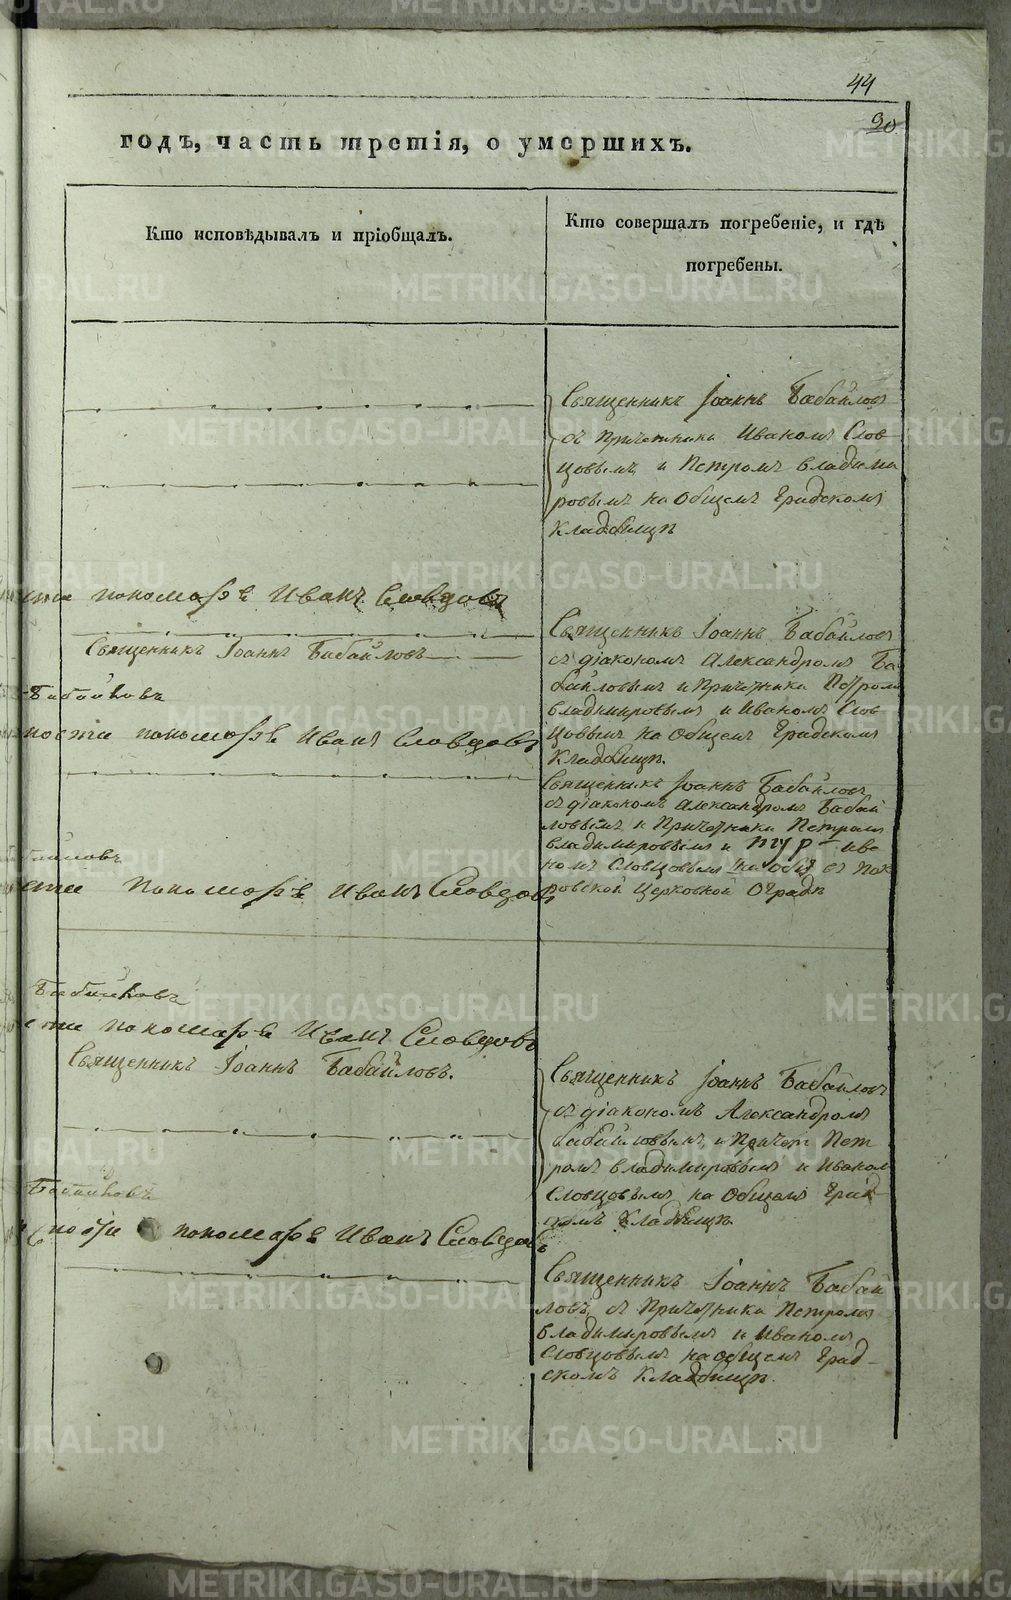 44
90
годъ, часть третія, о умершихъ.
Кто исповѣдывалъ и пріобщалъ.
Кто совершалъ погребеніе, и гдѣ
погребены.
Священникъ Іоаннъ Бабайловъ
съ Причетники Иваномъ Слов-
цовымъ и Петромъ Владими
ровымъ на общемъ Градскомъ
Кладбищѣ
пономарь Иванъ Словцовъ
Священникъ Іоаннъ Бабайловъ
Священникъ Іоаннъ Бабайловъ
съ діакономъ Александромъ Ба
байловымъ и Причетники Петромъ
Владимировымъ и Иваномъ Слов
цовымъ на общемъ Градскомъ
Кладбищѣ.
пономарь Иванъ Словцовъ
Священникъ Іоаннъ Бабайловъ
съ діакономъ Александромъ Бабай
ловымъ и Причетники Петромъ
Владимировымъ и Ива
номъ Словцовымъ въ Пок
ровской Церковной Оградѣ
Пономарь Иванъ Словцовъ
пономарь Иванъ Словцовъ
Священникъ Іоаннъ Бабайловъ.
Священникъ Іоаннъ Бабайловъ
съ діакономъ Александромъ
Бабайловымъ и Причет Пет
ромъ Владимировымъ и Иваномъ
Словцовымъ на общемъ Град
скомъ Кладбищѣ.
пономарь Иванъ Словцовъ
Священникъ Іоаннъ Бабай
ловъ съ Причетники Петромъ
Владимировымъ и Иваномъ
Словцовымъ на общемъ Град-
скомъ Кладбищѣ.
METRIKI.GASO-URAL.RU